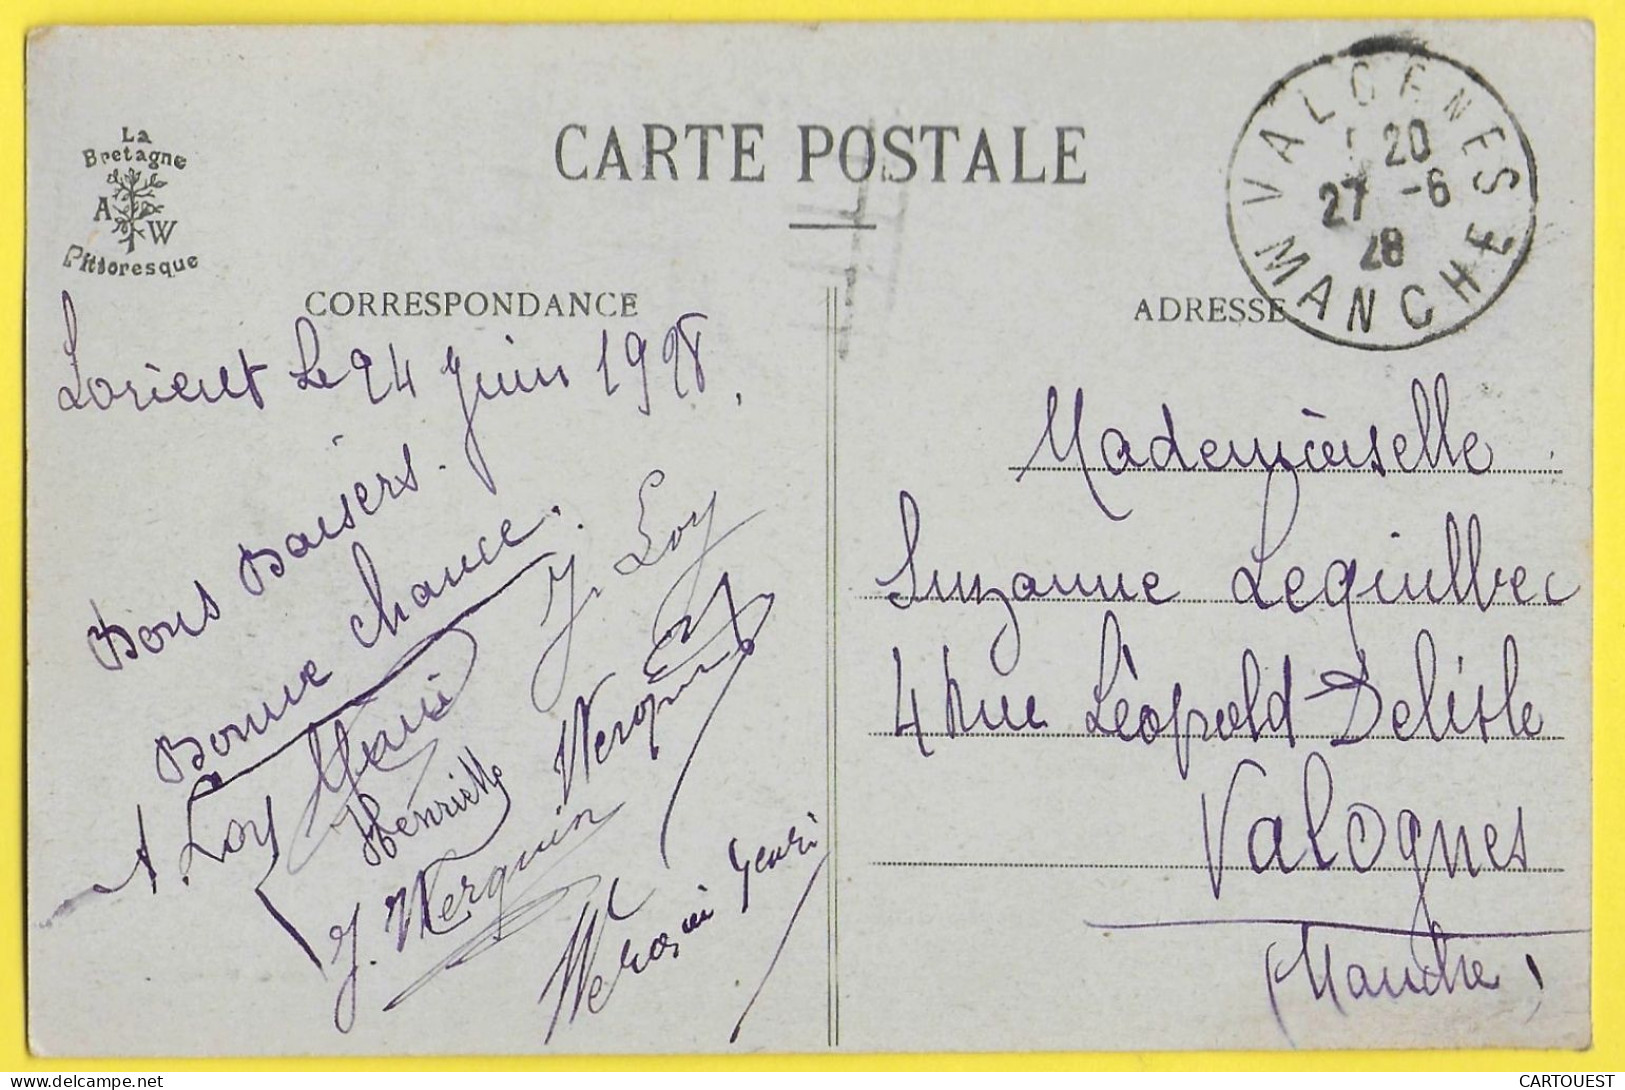 La
Bretagne
A W
Pittoresque
CARTE POSTALE
VALOGNES
20
27 -6
28
MANCHE
CORRESPONDANCE
ADRESSE
Lorient Le 24 Juin 1928.
Bons Baisers.
Bonne chance.
J. Loy
A. Loy
Henriette
J. Werquin
Werquin
Werquin Henri
Mademoiselle
Suzanne Lequilbec
4 Rue Léopold Delisle
Valognes
(Manche)
delcampe.net
CARTOUEST